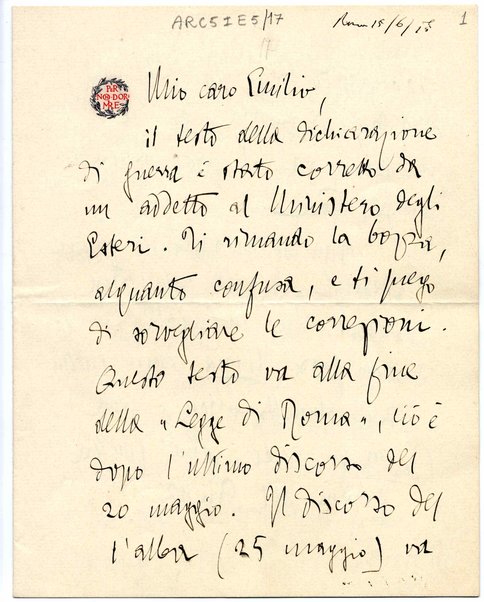 ARC5IE5/17
Roma 15/6/15
1
17
PER
NON DOR
MIRE
Mio caro Emilio,
il testo della dichiarazione
di guerra è stato corretto da
un addetto al Ministero degli
Esteri. Ti rimando la bozza,
alquanto confusa, e ti prego
di sorvegliare le correzioni.
Questo testo va alla fine
della "Legge di Roma", ciò è
dopo l'ultimo discorso del
20 maggio. Il discorso del
l'alba (25 maggio) va